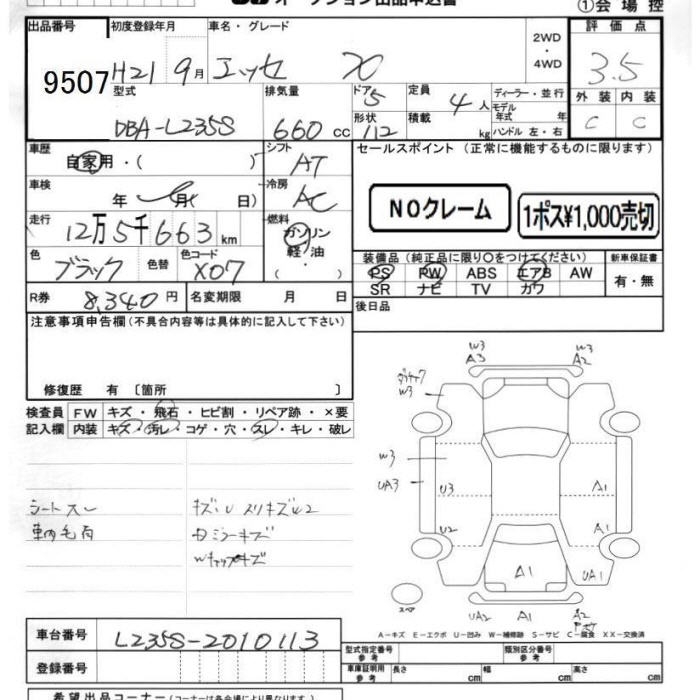 オークション出品申込書
①会場控
出品番号 初度登録年月 車名・グレード 2WD ・ 4WD 評価点
9507 H21 9月 エッセ 3.5
型式 排気量 ドア 5 定員 4人 ディーラー・並行 外装 内装
DBA-L235S 660 cc 形状 112 積載 kg モデル年式 年式 ハンドル 左・右 C C
車歴 自家用・( ) シフト AT セールスポイント (正常に機能するものに限ります)
車検 年 月( 日) 冷房 AC NOクレーム 1ポス¥1,000売切
走行 12万5千663 km 燃料 ガソリン
軽油・( )
色 ブラック 色替 色コード X07 装備品 (純正品に限り○をつけてください) 新車保証書
PS PW ABS エアB AW 有・無
SR ナビ TV カワ
R券 8,340円 名変期限 月 日 後日品
注意事項申告欄(不具合内容等は具体的に記入して下さい)
修復歴 有 〔箇所 〕
検査員 FW キズ・飛石・ヒビ割・リペア跡・×要
記入欄 内装 キズ・汚レ・コゲ・穴・スレ・キレ・破レ
W3 A3 W3 A2
W3
W3
UA3 U3 A1
U2 A1
A1 UA1
UA2 A1 A2
スペア
シートスレ
車内毛有
A-キズ E-エクボ U-凹み W-補修跡 S-サビ C-腐食 XX-交換済
車台番号 L235S-2010113
型式指定番号 参考 類別区分番号 参考
登録番号 車庫証明用 参考 長さ cm 幅 cm 高さ cm
希望出品コーナー (コーナーは各会場により異なります。)